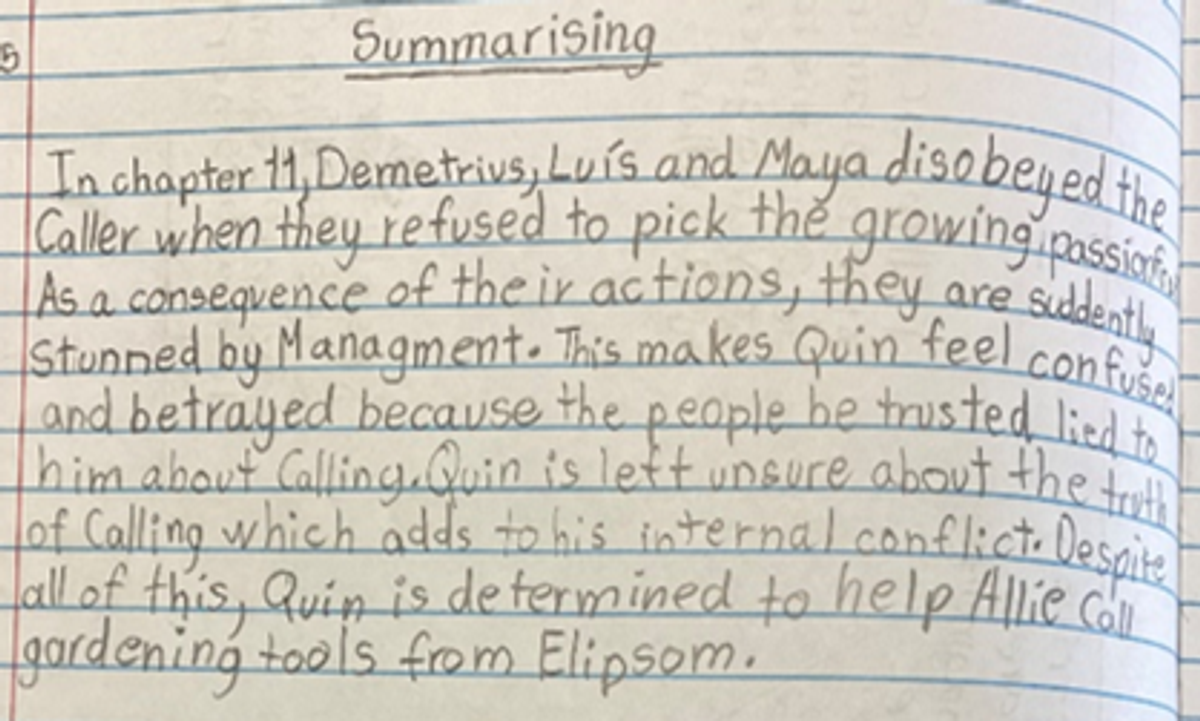 5
Summarising
In chapter 11, Demetrius, Luís and Maya disobeyed the
Caller when they refused to pick the growing
As a consequence of their actions, they are suddently
stunned by Managment. This makes Quin feel confused
and betrayed because the people he trusted lied to
him about Calling. Quin is left unsure about the truth
of Calling which adds to his internal conflict. Despite
all of this, Quin is determined to help Allie Call
gardening tools from Elipsom.